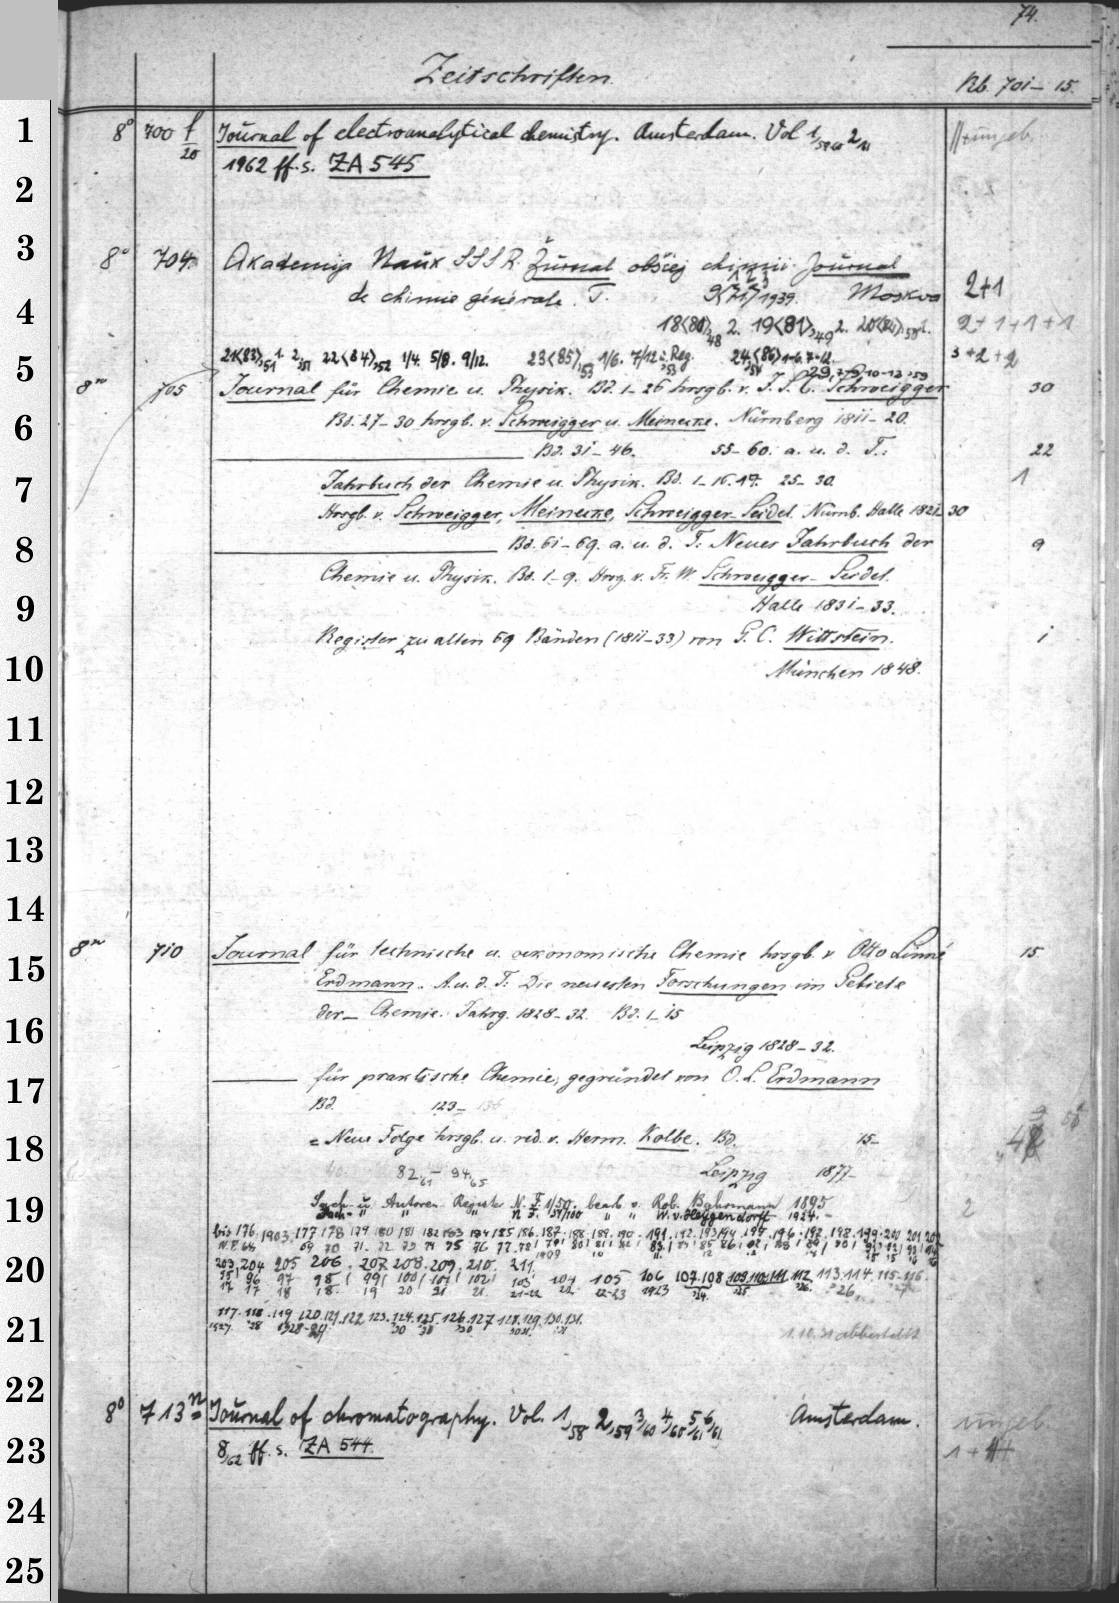 74.
Zeitschriften.
Rb. 701-15.
1
8° 700 f/20 Journal of electroanalytical chemistry. Amsterdam. Vol 1
ungeb.
1962 ff. s. ZA 545
2
3
8° 704 Akademija Nauk SSSR. Žurnal obščej chimii. Journal
de chimie générale. T. 9(71) 1939. Moskva 2+1
4
18(80),48 2. 19(81),49 2. 20(82),50 2+1+1+1
5
21(83),51 1. 2,51 22(84),52 1/4. 5/8. 9/12. 23(85),53 1/6. 7/12 u. Reg. 24(86) 1-6. 7-12. 3+2+2
8° 705 Journal für Chemie u. Physik. Bd. 1-26 hrsgb. v. J. S. C. Schweigger 30
6
Bd. 27-30 hrsgb. v. Schweigger u. Meinecke. Nürnberg 1811-20.
Bd. 31-46. 55-60. a. u. d. T.: 22
7
Jahrbuch der Chemie u. Physik. Bd. 1-16. 19. 25-30. 1
Hrsgb. v. Schweigger, Meinecke, Schweigger-Seidel. Nürnb. Halle 1821-30
8
Bd. 61-69. a. u. d. T. Neues Jahrbuch der 9
Chemie u. Physik. Bd. 1-9. Hrsg. v. Fr. W. Schweigger-Seidel.
9
Halle 1831-33.
Register zu allen 69 Bänden (1811-33) von G. C. Wittstein. 1
10
München 1848.
11
12
13
14
8° 710 Journal für technische u. oekonomische Chemie hrsgb. v. Otto Linné 15
15
Erdmann. A. u. d. T. Die neuesten Forschungen im Gebiete
der Chemie. Jahrg. 1828-32. Bd. 1-15
16
Leipzig 1828-32.
für praktische Chemie, gegründet von O. L. Erdmann
17
Bd. 123-
= Neue Folge hrsgb. u. red. v. Herm. Kolbe. Bd. 15-
18
82,61 - 94,65 Leipzig 1877-
19
Sach- u. Autoren Register N. F. 1/50. bearb. v. Rob. 1895
N. F. 51/100 W. v. Heygendorff 1924.- 2
bis 176. 1903. 177 178 179 180 181 182 183 184 185 186. 187. 188. 189. 190. 191. 192. 193/94 195 196. 197. 198. 199. 200 201 202
20
203. 204 205 206. 207. 208. 209. 210. 211.
95 96 97 98 99 100 101 102 103 104 105 106 107. 108 109. 110. 111. 112 113. 114. 115-116.
21
117. 118. 119 120. 121. 122. 123. 124. 125. 126. 127 128. 129. 130. 131.
1.10.31 abbestellt
22
8° 713 n Journal of chromatography. Vol. 1,58 2,59 3/60 4/60 5/61 6/61 Amsterdam. ungeb.
23
8/62 ff. s. ZA 544.
24
25